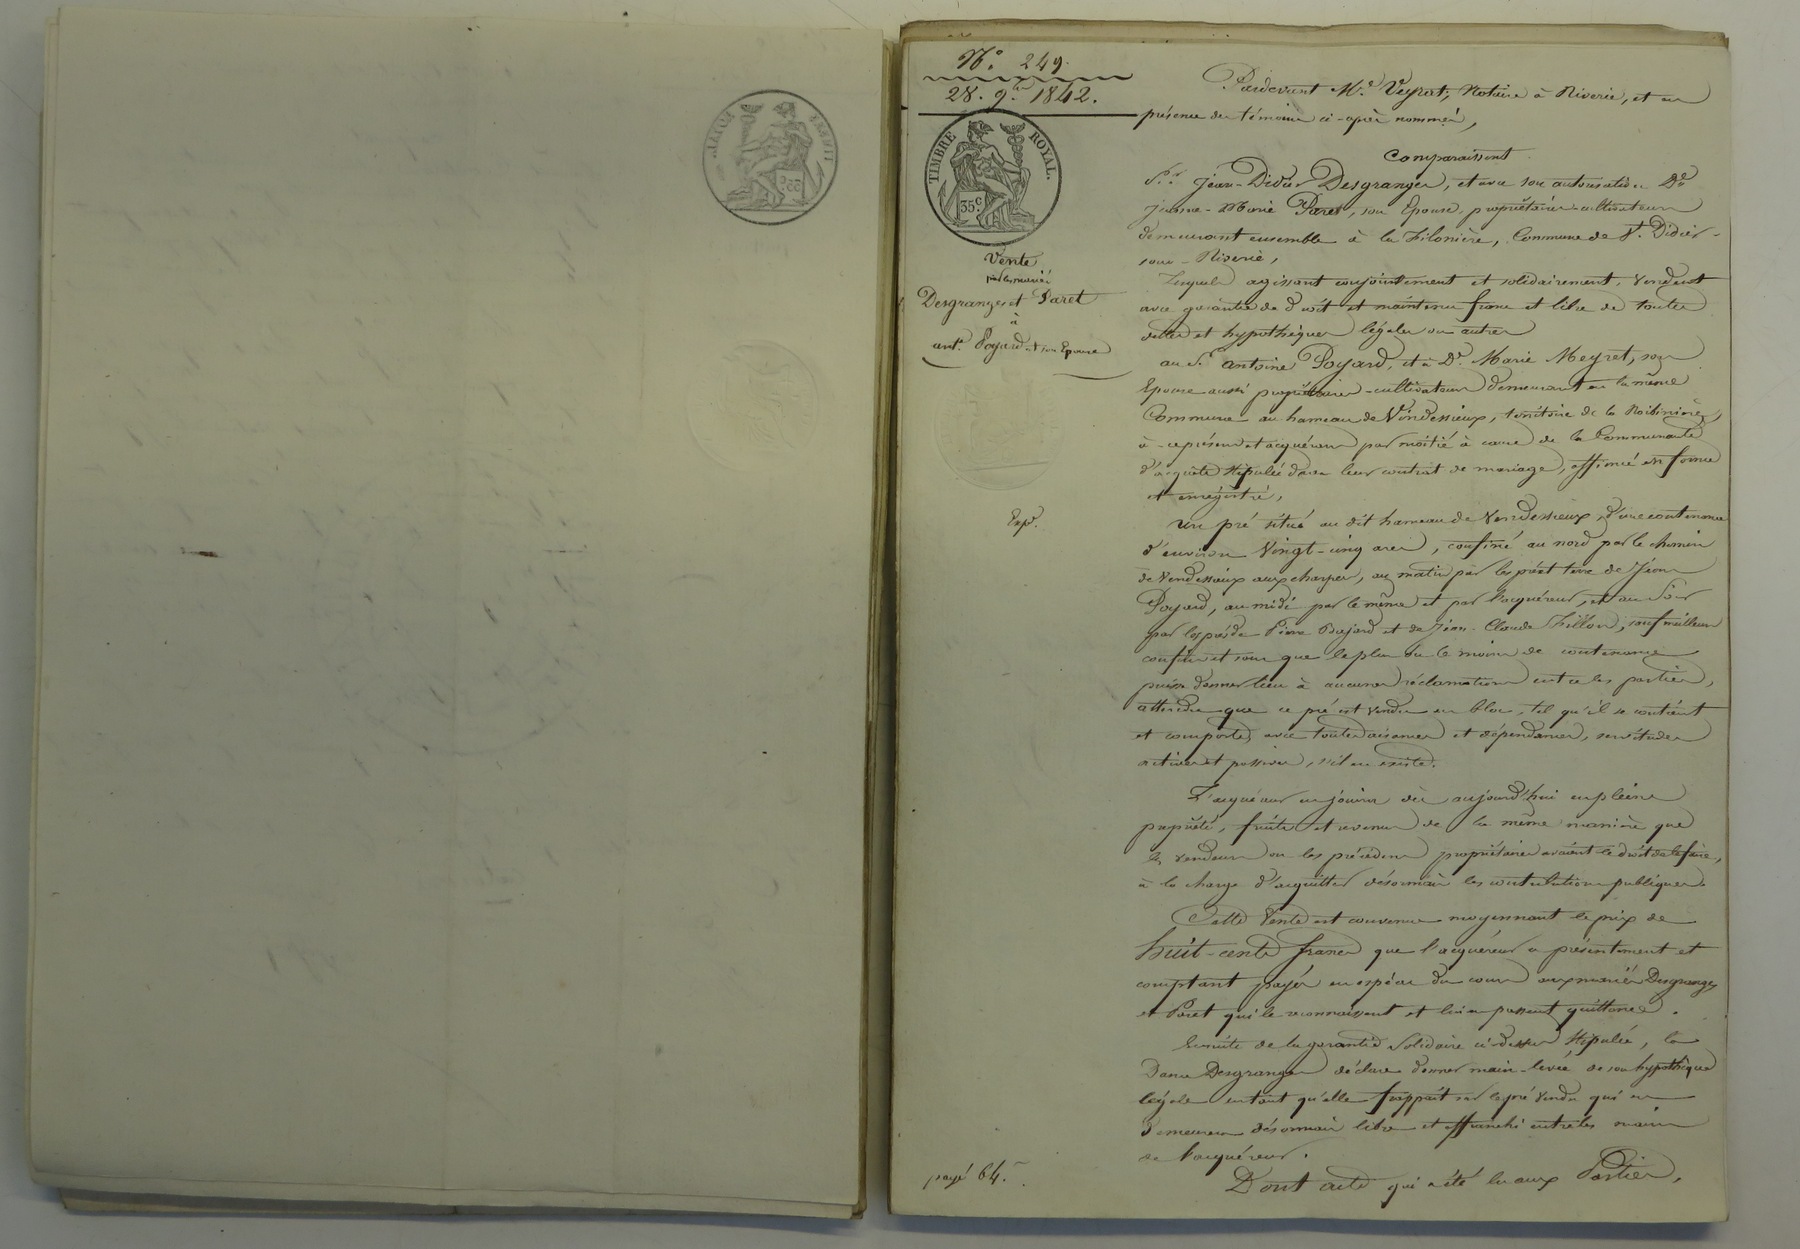 N.° 249.
28. 9.bre 1842.
TIMBRE ROYAL.
35.c
Vente
par les mariés
Desgranges et Paret
à
ant.e Poyard et son Epouse
Exp.
payé 64.
Pardevant M.e Veyrat, Notaire à Riverie, et en
présence des témoins ci-après nommés,
Comparaissent
S.r Jean-Didier Desgranges, et avec son autorisation D.e
Jeanne-Marie Paret, son Epouse, propriétaires-cultivateurs
demeurant ensemble à la Filonière, Commune de St. Didier-
sous-Riverie,
Lesquels agissant conjointement et solidairement, Vendent
avec garantie de droit et maintenue franc et libre de toutes
dettes et hypothèques légales ou autres
au S.r antoine Poyard, et à D.e Marie Meyret, son
Epouse aussi propriétaires-cultivateurs demeurant en la même
Commune au hameau de Vindessieux, territoire de la
à ce présens et acquéreurs par moitié à cause de la Communauté
d'acquêts stipulée dans leur contrat de mariage, en forme
et enregistré,
Un pré situé au dit hameau de Vendessieux, d'une contenance
d'environ Vingt-cinq ares, confiné au nord par le chemin
de Vendessieux aux charpes, au matin par les pré et terre de Jean
Poyard, au midi par le même et par l'acquéreur, et au Soir
par les prés de Pierre et de Jean-Claude Fillon, sauf meilleurs
confins et sans que le plus ou le moins de contenance
puisse donner lieu à aucunes réclamations entre les parties,
attendu que ce pré est vendu en bloc, tel qu'il se contient
et comporte, avec toutes aisances et dépendances, servitudes
actives et passives, s'il en existe.
L'acquéreur en jouira dès aujourd'hui en pleine
propriété, fruits et revenus de la même manière que
les vendeurs ou les précédens propriétaires avaient le droit de le faire,
à la charge d'acquitter désormais les contributions publiques.
Cette Vente est convenue moyennant le prix de
huit-cents francs que l'acquéreur a présentement et
comptant payés en espèces du cours aux mariés Desgranges
et Paret qui le reconnaissent et lui en passent quittance.
Ensuite de la garantie Solidaire ci-dessus stipulée, la
Dame Desgranges déclare donner main-levée de son hypothèque
légale en tant qu'elle frappait sur le pré vendu qui en
demeurera désormais libre et affranchi entre les mains
de l'acquéreur.
Dont acte qui a été lu aux Parties,